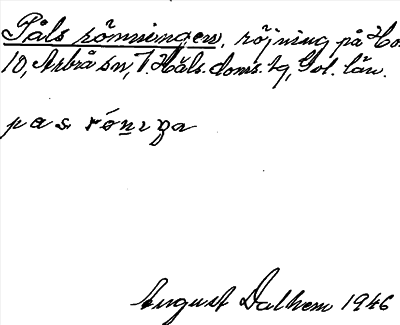 Påls rönningen, röjning på Ho.
10, Arbrå sn, V. Häls. doms. tg, Gvl. län.
August Dalhem 1946